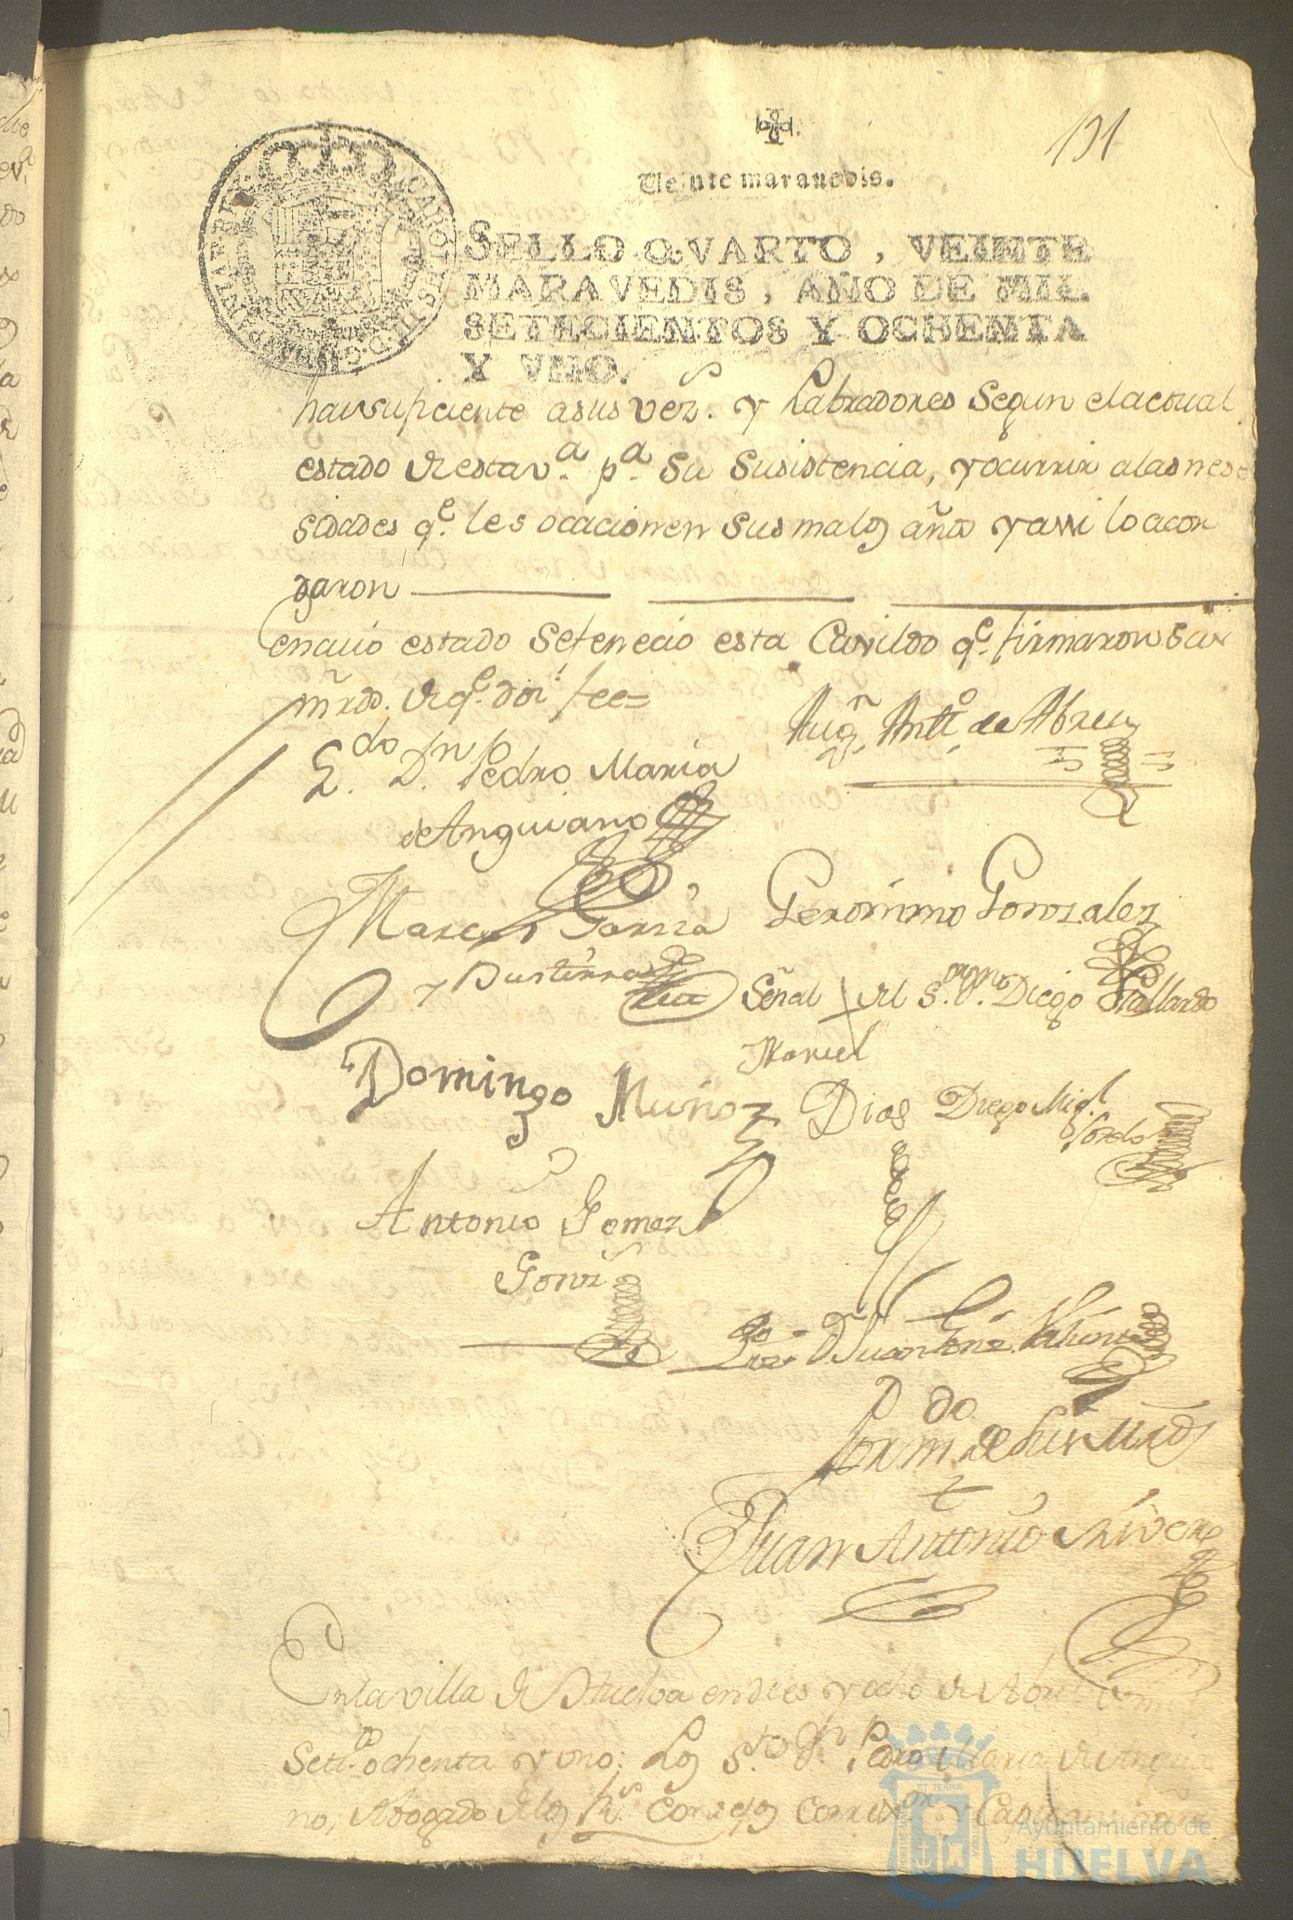 191
Veinte marauedis.
SELLO QVARTO, VEINTE
MARAVEDIS, AÑO DE MIL
SETECIENTOS Y OCHENTA
Y VNO.
CAROLUS III D.G. HISPANIAR REX
asus vez.s y Labradores Segun elactual
estado de esta v.a p.a su susistencia, y ocurrir alas nese
sidades q.e les ocacionen sus malos años y assi lo acor
daron
en cuio estado se fenecio esta Cavildo q.e firmaron sus
mrds. de q.e doi fee=
Aug.n Ant.o de Abreu
L.do D.n Pedro Maria
de Anguiano
Marcos Garcia
y Bustirra
Geronimo Gonzalez
Señal del S.or D.n Diego Gallardo
Domingo Muñoz
Manuel
Dias
Diego Mig.l
Antonio Gomez
Gonz
L.do D.n Juan
Juan Antonio
En la villa de Huelva en dies y ocho de Abril
Set.os ochenta y uno: Los S.res D.n Pedro Maria de Anguia
no, Abogado de los R.s Consejos Corregi.or y Capitan
Ayuntamiento de
HUELVA